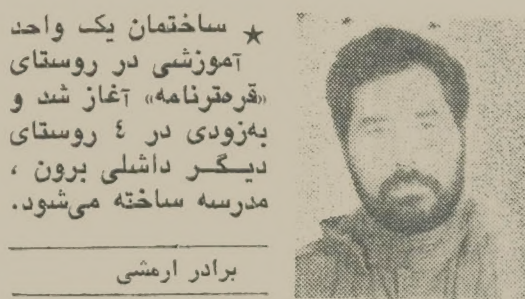 ★ ساختمان یک واحد
آموزشی در روستای
«قره‌ترنامه» آغاز شد و
به‌زودی در ٤ روستای
دیگر داشلی برون ،
مدرسه ساخته می‌شود.
برادر ارمشی